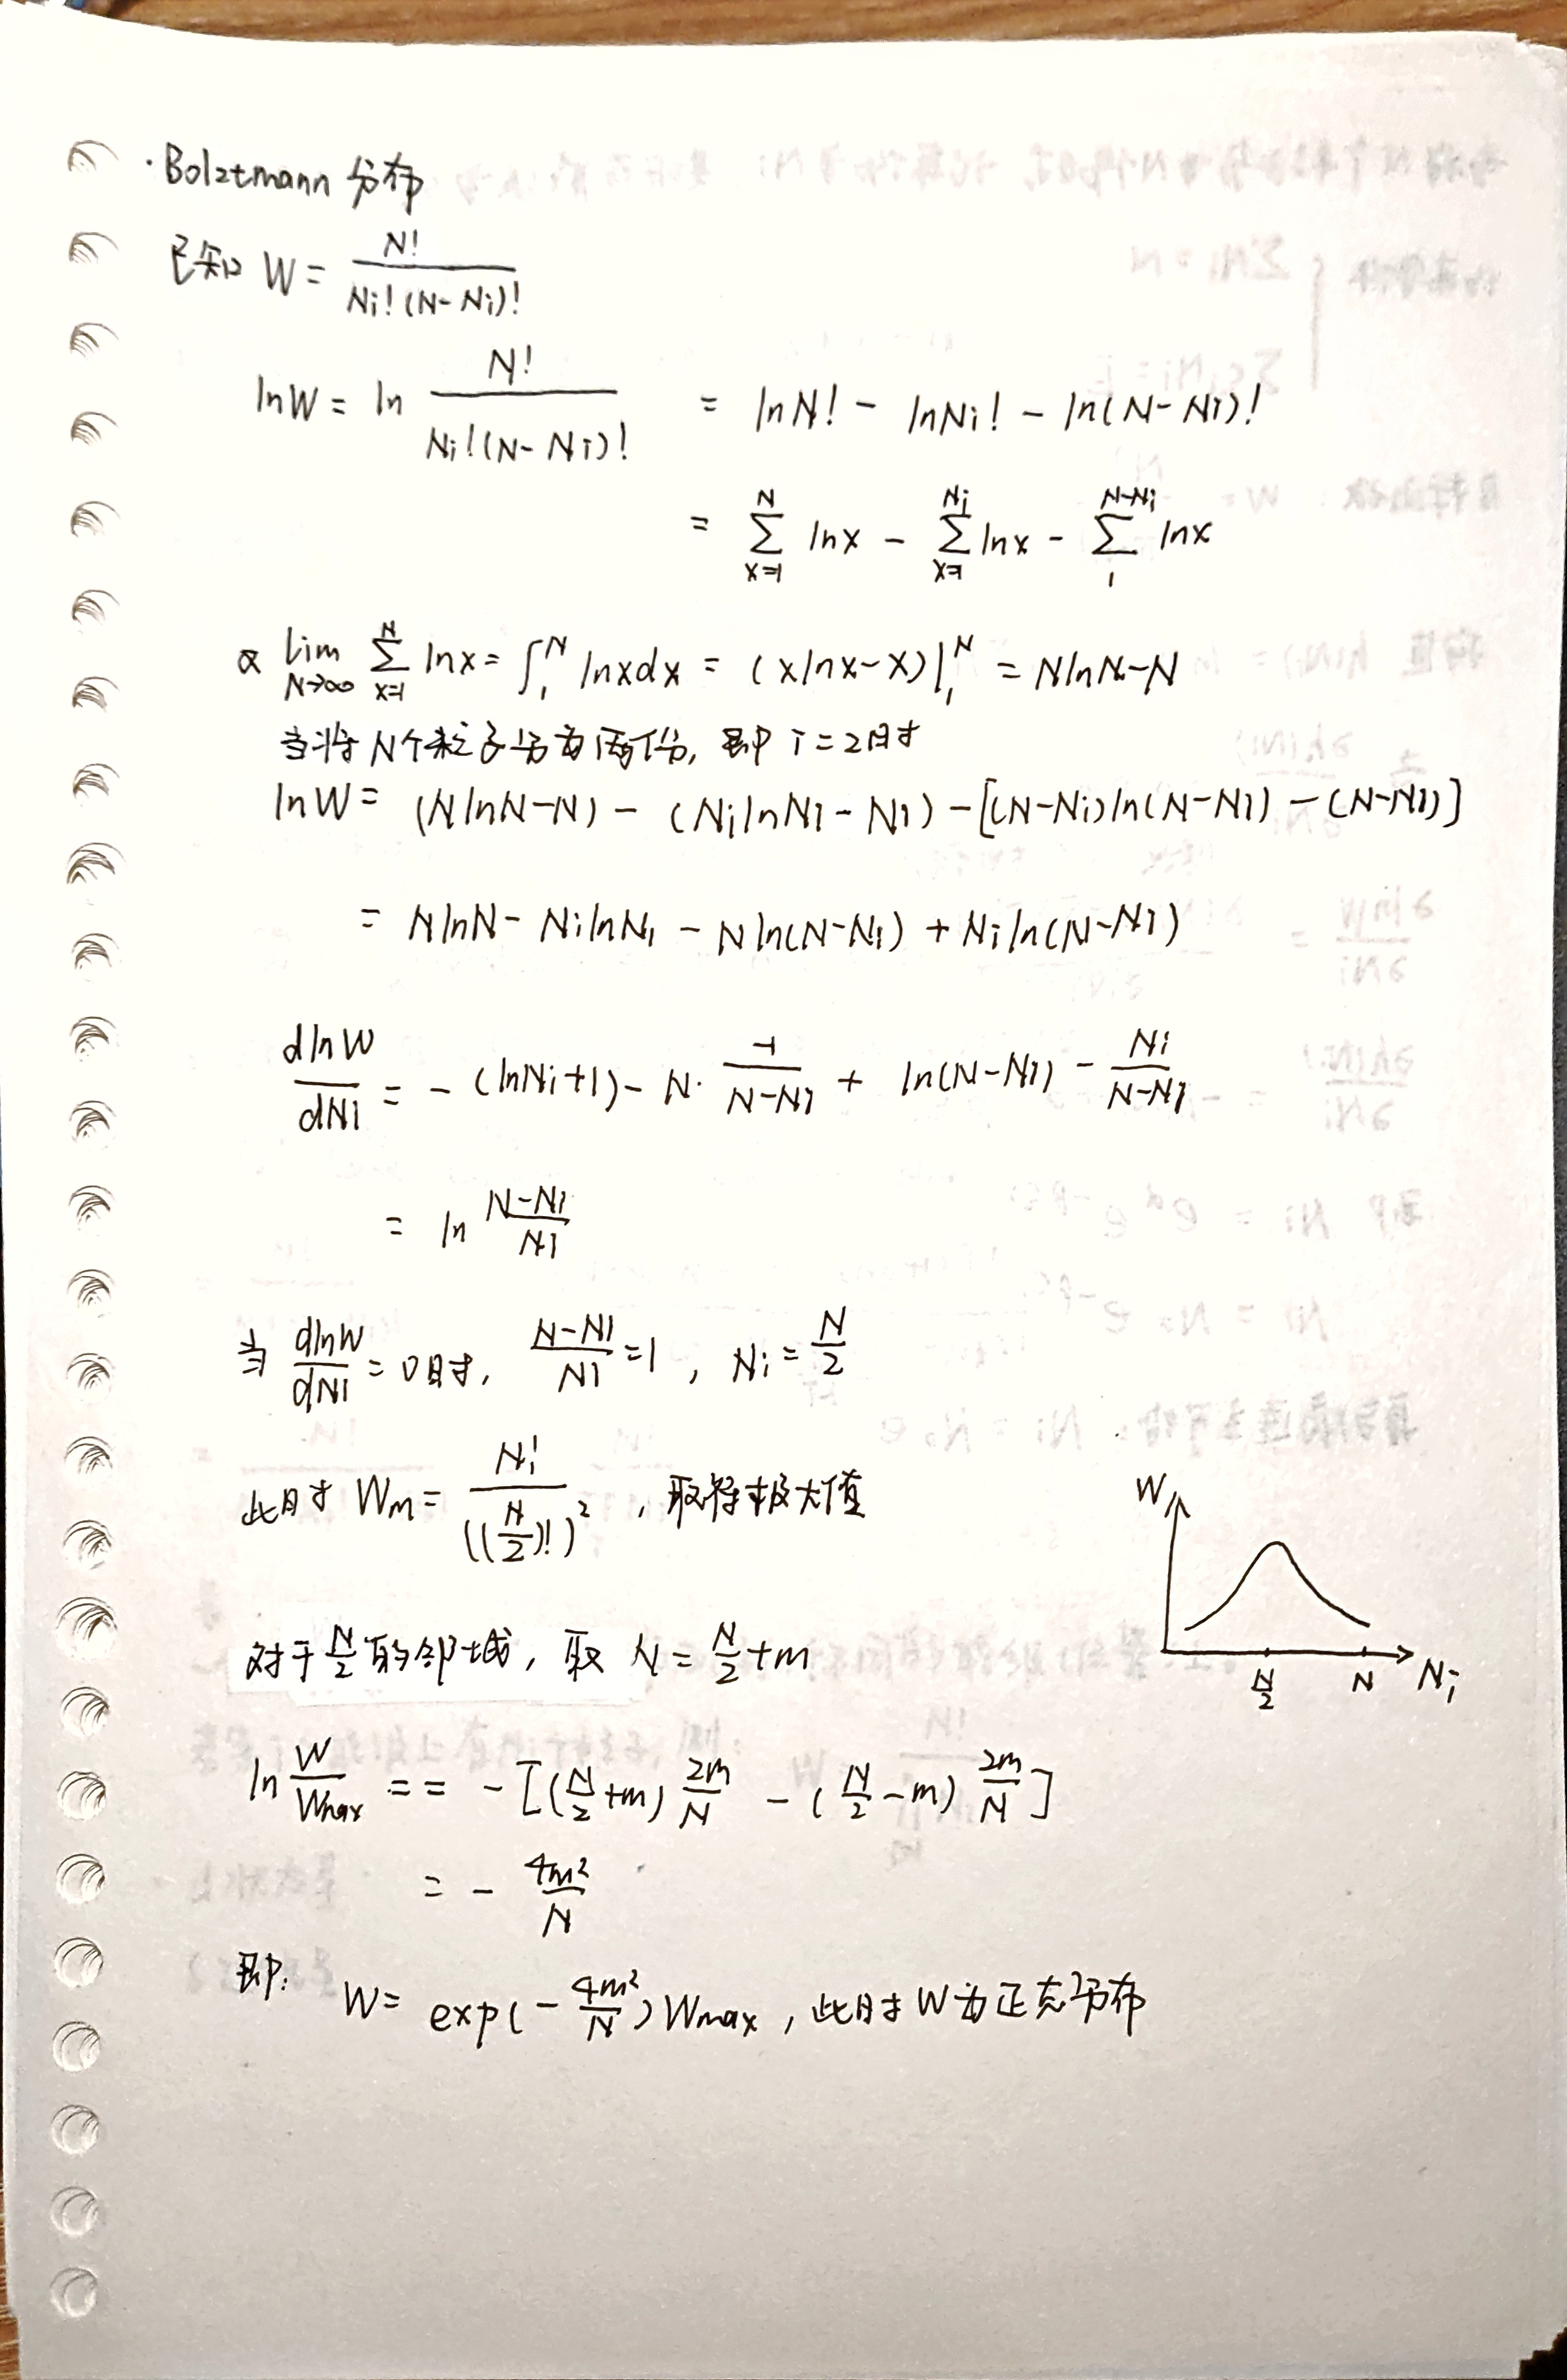 ·Bolztmann 分布
已知 W = N! / Ni!(N-Ni)!
lnW = ln N! / Ni!(N-Ni)! = lnN! - lnNi! - ln(N-Ni)!
= ∑_{x=1}^{N} lnx - ∑_{x=1}^{Ni} lnx - ∑_{1}^{N-Ni} lnx
又 lim_{N→∞} ∑_{x=1}^{N} lnx = ∫_1^N lnxdx = (xlnx-x)|_1^N = NlnN-N
当将N个粒子分为两份, 即 i=2时
lnW = (NlnN-N) - (NilnNi-Ni) - [(N-Ni)ln(N-Ni) - (N-Ni)]
= NlnN - NilnNi - Nln(N-Ni) + Niln(N-Ni)
dlnW/dNi = -(lnNi+1) - N· -1/(N-Ni) + ln(N-Ni) - Ni/(N-Ni)
= ln (N-Ni)/Ni
当 dlnW/dNi = 0时, (N-Ni)/Ni = 1 , Ni = N/2
此时 Wm = N! / ((N/2)!)² , 取得极大值
W
N/2 N Ni
对于 N/2 的邻域, 取 N = N/2 + m
ln W/Wmax = = -[(N/2+m) 2m/N - (N/2-m) 2m/N]
= - 4m²/N
即: W = exp(- 4m²/N) Wmax , 此时 W 为正态分布